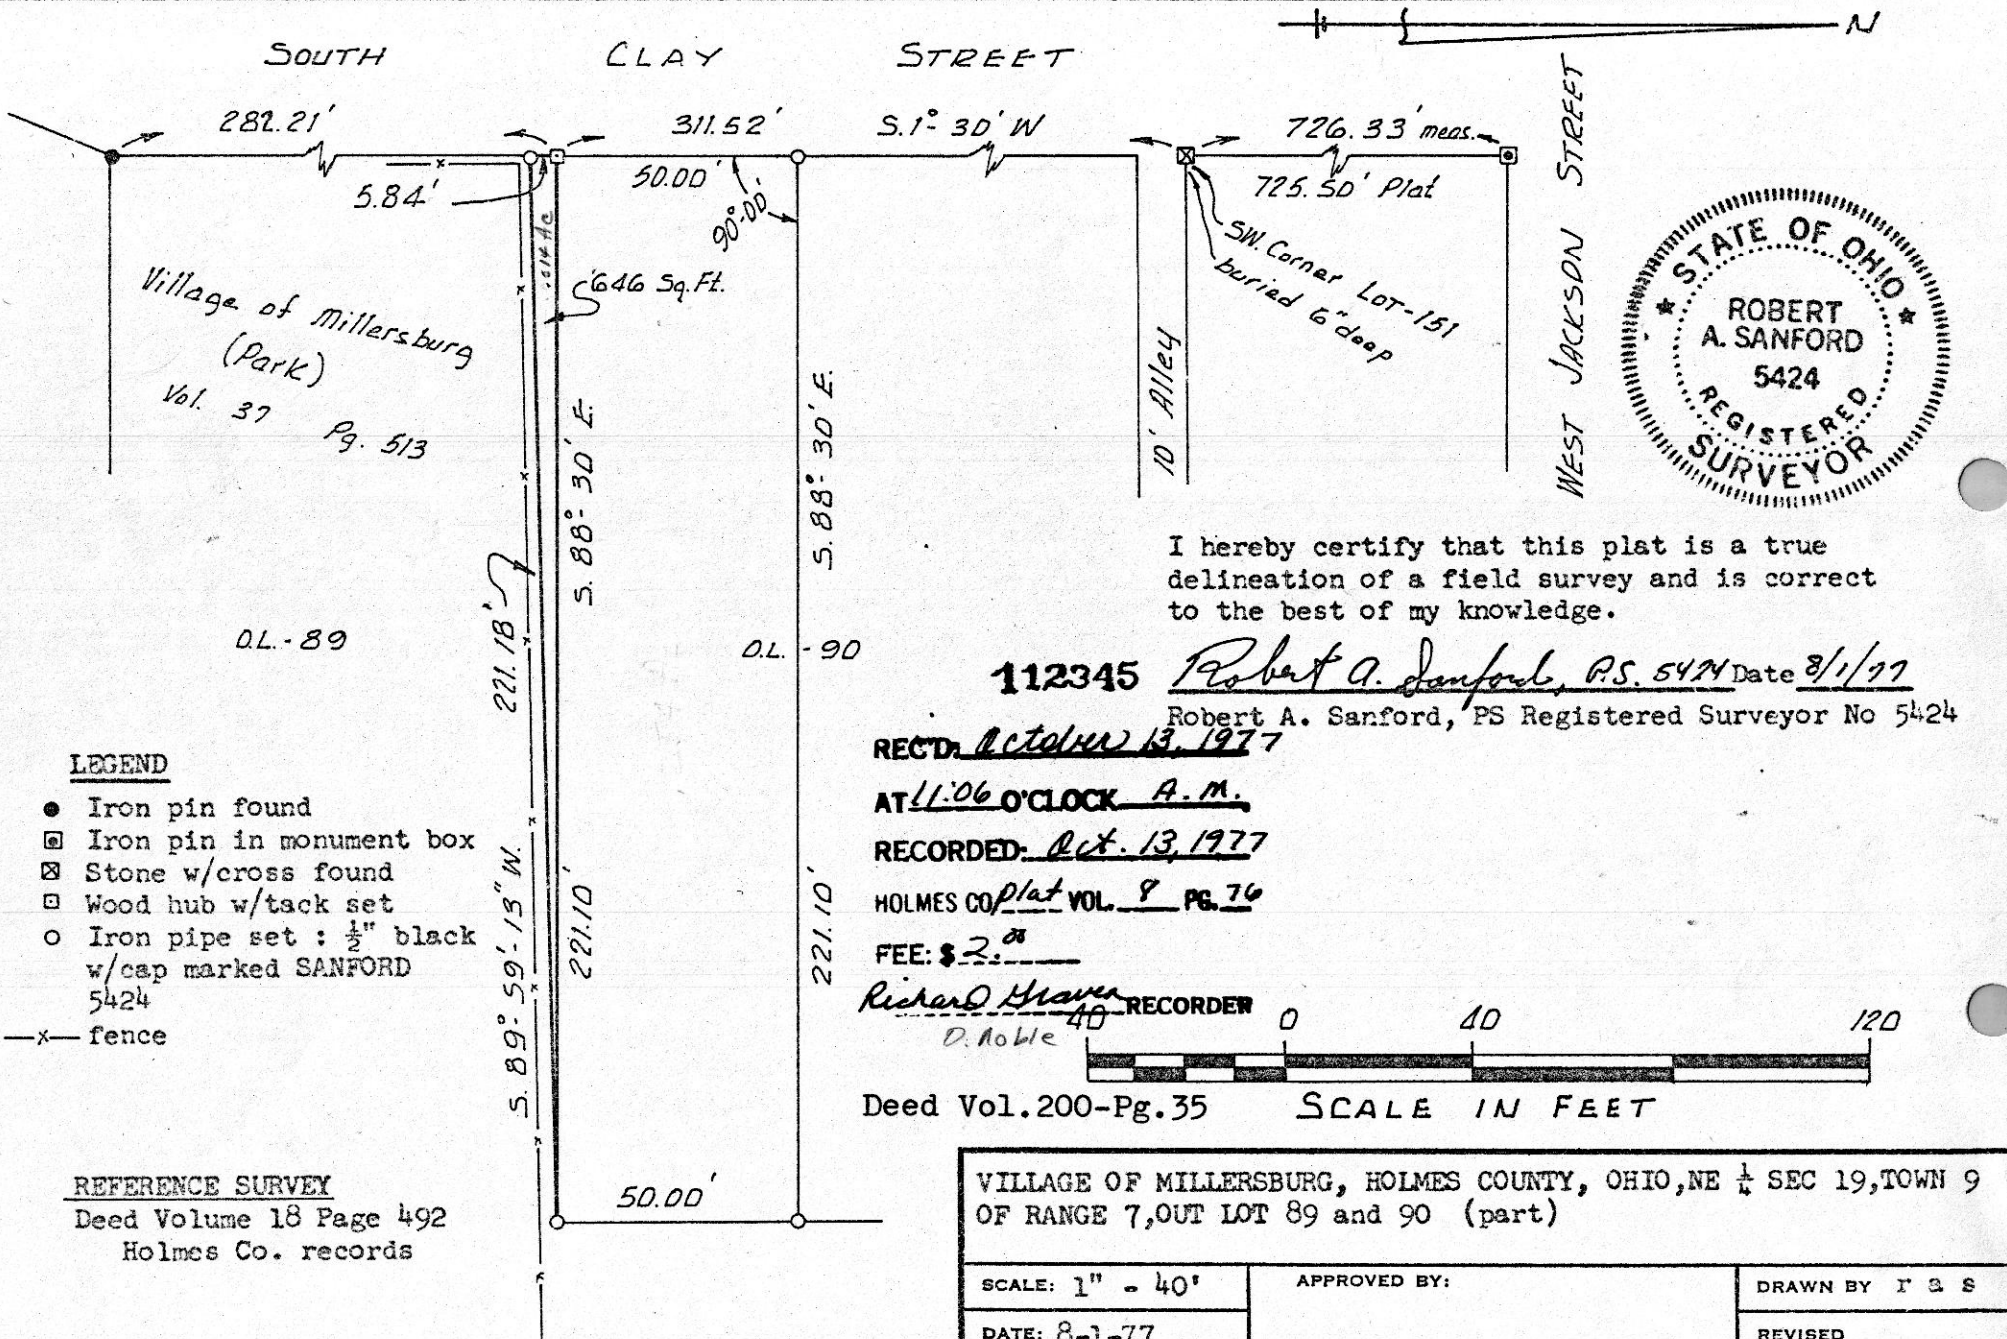 N
SOUTH CLAY STREET
282.21'
311.52'
S. 1°- 30' W
726.33' meas.
5.84'
50.00'
90°-00'
725.50' Plat
.014 Ac
646 Sq. Ft.
SW. Corner LOT-151
buried 6" deep
10' Alley
WEST JACKSON STREET
Village of Millersburg
(Park)
Vol. 37 Pg. 513
S. 88°- 30' E.
S. 88°- 30' E.
STATE OF OHIO
ROBERT
A. SANFORD
5424
REGISTERED
SURVEYOR
I hereby certify that this plat is a true
delineation of a field survey and is correct
to the best of my knowledge.
Robert A. Sanford, P.S. 5424 Date 8/1/77
Robert A. Sanford, PS Registered Surveyor No 5424
O.L. - 89
221.18'
O.L. - 90
112345
REC'D: October 13, 1977
AT 11:06 O'CLOCK A.M.
RECORDED: Oct. 13, 1977
HOLMES CO Plat VOL. 8 PG. 76
FEE: $ 2.00
Richard Graven RECORDER
D. Noble
LEGEND
Iron pin found
Iron pin in monument box
Stone w/cross found
Wood hub w/tack set
Iron pipe set : ½" black
w/cap marked SANFORD
5424
—x— fence
S. 89°- 59'- 13" W.
221.10'
221.10'
40 0 40 120
Deed Vol.200-Pg.35
SCALE IN FEET
REFERENCE SURVEY
Deed Volume 18 Page 492
Holmes Co. records
50.00'
VILLAGE OF MILLERSBURG, HOLMES COUNTY, OHIO,NE ¼ SEC 19,TOWN 9
OF RANGE 7,OUT LOT 89 and 90 (part)
SCALE: 1" - 40'
APPROVED BY:
DRAWN BY r a s
DATE: 8-1-77
REVISED